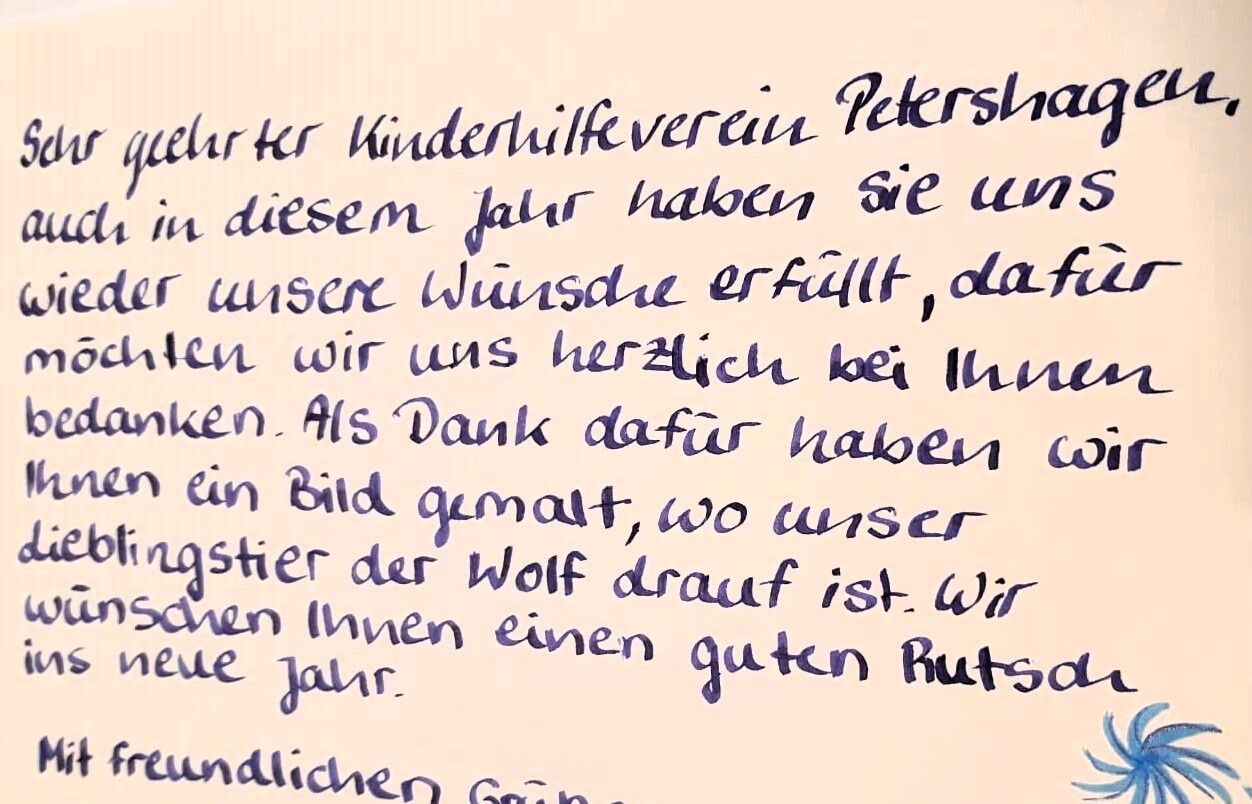 Sehr geehrter Kinderhilfeverein Petershagen,
auch in diesem Jahr haben Sie uns
wieder unsere Wünsche erfüllt, dafür
möchten wir uns herzlich bei Ihnen
bedanken. Als Dank dafür haben wir
Ihnen ein Bild gemalt, wo unser
Lieblingstier der Wolf drauf ist. Wir
wünschen Ihnen einen guten Rutsch
ins neue Jahr.
Mit freundlichen